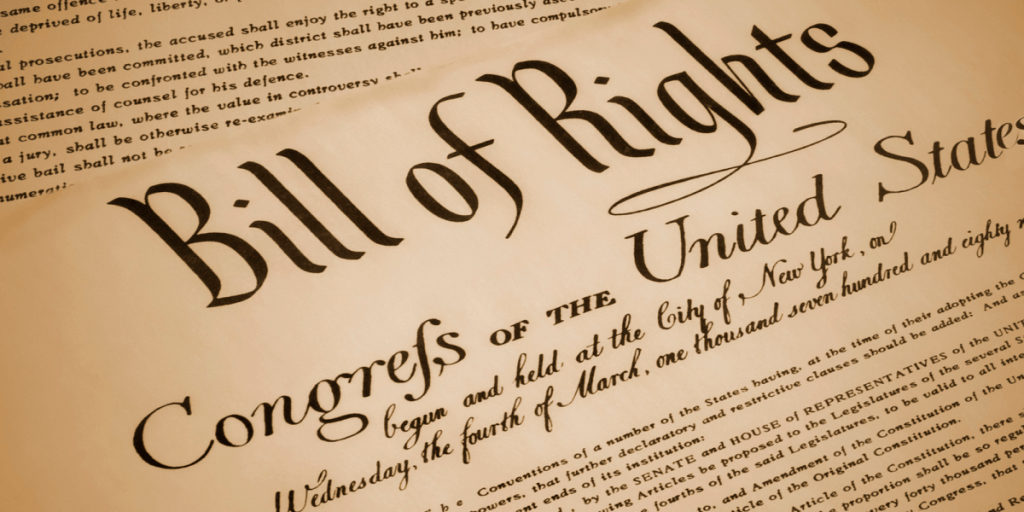 same offence
deprived of life, liberty, or
al prosecutions, the accused shall enjoy the right to a
all have been committed, which district shall have been previously
sation; to be confronted with the witnesses against him; to have compulsory
ssistance of counsel for his defence.
t common law, where the value in controversy shall
a jury, shall be otherwise re-exami
ive bail shall not be
Bill of Rights
Congreſs OF THE United States
begun and held at the City of New York, on
Wednesday, the fourth of March, one thousand seven hundred and eighty
The Conventions of a number of the States having, at the time of their adopting the
owers, that further declaratory and restrictive clauses should be added: And
ends of its institution:
by the SENATE and HOUSE of REPRESENTATIVES of the UNIT
wing Articles be proposed to the Legislatures of the several
fourths of the said Legislatures, to be valid to all
to, and Amendment of the Constitution of the
icle of the Original Constitution.
Article of the Constitution, there
proportion shall be so
very forty thousand
Congress, that